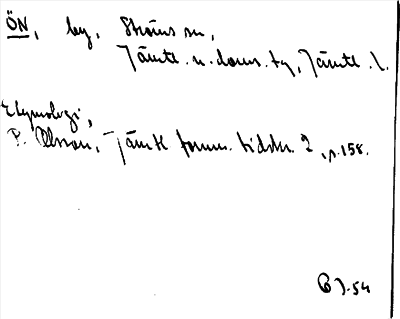 ÖN, by, Ströms sn,
Jämtl. n. doms. tg, Jämtl. l.
Etymologi,
P. Olsson, Jämtl. fornm. tidskr. 2, s. 158.
54